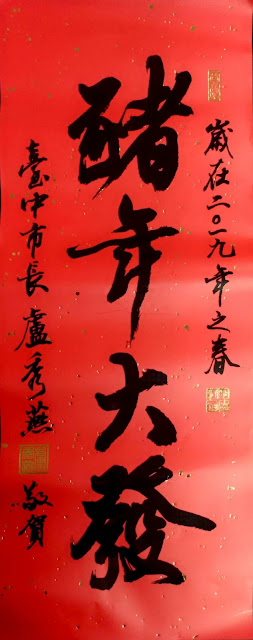 歲在二〇一九年之春
豬年大發
臺中市長盧秀燕敬賀